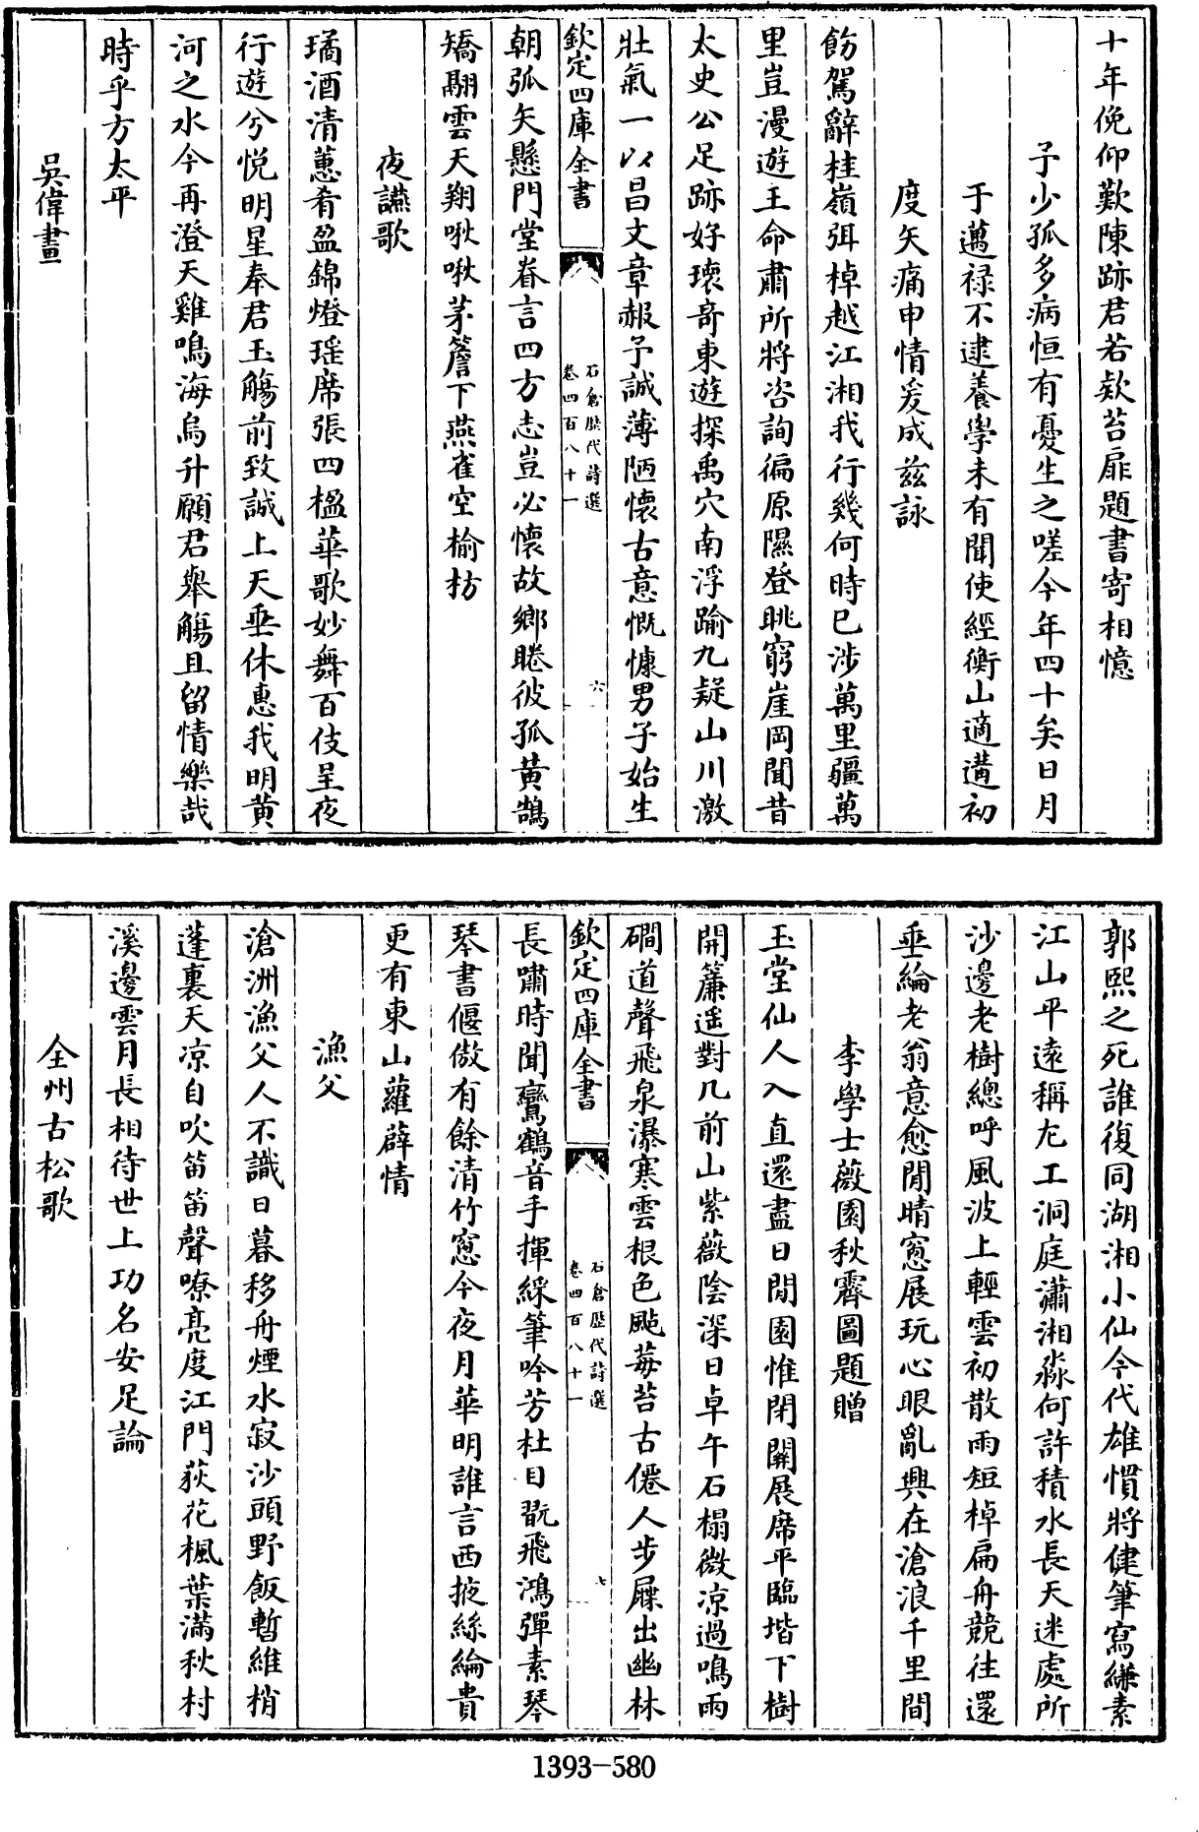 十年俛仰歎陳跡君若欵苔扉題書寄相憶
予少孤多病恒有憂生之嗟今年四十矣日月
于邁禄不逮養學未有聞使經衡山適遘初
度矢痛申情爰成兹詠
飭駕辭桂嶺弭棹越江湘我行幾何時已涉萬里疆萬
里豈漫遊王命肅所將咨詢徧原隰登眺窮崖岡聞昔
太史公足跡好瓌竒東遊探禹穴南浮踰九疑山川激
壯氣一以昌文章赧予誠薄陋懷古意慨慷男子始生
欽定四庫全書
石倉歷代詩選
卷四百八十一
六
朝弧矢懸門堂眷言四方志豈必懷故鄉睠彼孤黄鵠
矯翮雲天翔啾啾茅簷下燕雀空榆枋
夜讌歌
璚酒清蕙肴盈錦燈瑤席張四楹華歌妙舞百伎呈夜
行遊兮悦明星奉君玉觴前致誠上天垂休惠我明黄
河之水今再澄天雞鳴海烏升願君舉觴且留情樂哉
時乎方太平
吳偉畫
郭熙之死誰復同湖湘小仙今代雄慣將健筆寫縑素
江山平逺稱尤工洞庭瀟湘淼何許積水長天迷處所
沙邊老樹總呼風波上輕雲初散雨短棹扁舟競往還
垂綸老翁意愈閒晴窻展玩心眼亂興在滄浪千里間
李學士薇園秋霽圖題贈
玉堂仙人入直還盡日閒園惟閉關展席平臨堦下樹
開簾遥對几前山紫薇陰深日卓午石榻微凉過鳴雨
磵道聲飛泉瀑寒雲根色颭莓苔古僊人步屧出幽林
欽定四庫全書
石倉歷代詩選
卷四百八十一
七
長嘯時聞鸞鶴音手揮綵筆吟芳杜目翫飛鴻彈素琴
琴書偃傲有餘清竹窻今夜月華明誰言西掖絲綸貴
更有東山蘿薜情
漁父
滄洲漁父人不識日暮移舟煙水寂沙頭野飯暫維梢
蓬裏天凉自吹笛笛聲嘹亮度江門荻花楓葉滿秋村
溪邊雲月長相待世上功名安足論
全州古松歌
1393-580